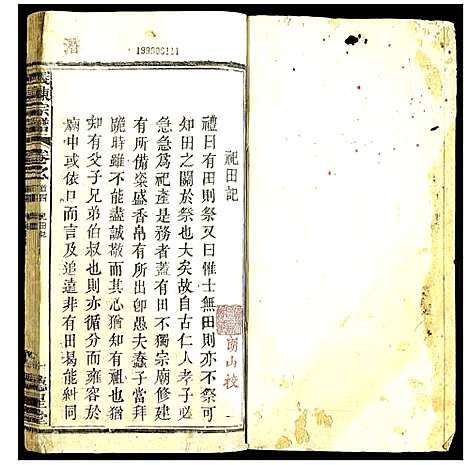 祀田記
禮曰有田則祭又曰惟士無田則亦不祭可
知田之關於祭也大矣故自古仁人孝子必
急急為祀產是務者蓋有田不獨宗廟修建
有所備粢盛香帛有所出卽愚夫蠢子當拜
跪時雖不能盡誠敬而其心猶知有祖也猶
知有父子兄弟伯叔也則亦循分而雍容於
廟中或依口而言及追遠非有田曷能糾同
陳宗譜
祀田記
199806111